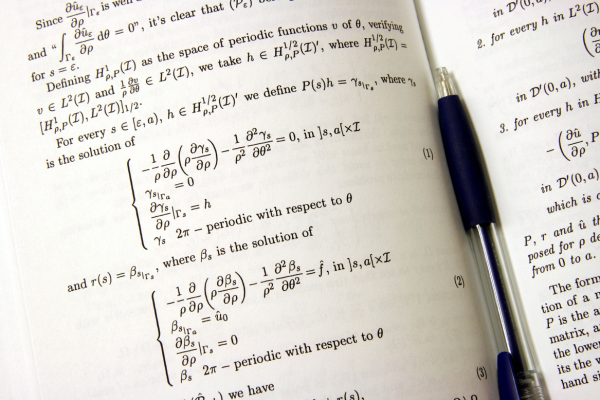 Since ∂û_ε/∂ρ|_Γε is well
and "∫_Γε ∂û_ε/∂ρ dθ = 0", it's clear that (P_ε)
for s = ε.
Defining H¹_ρ,P(I) as the space of periodic functions v of θ, verifying
v ∈ L²(I) and 1/ρ ∂v/∂θ ∈ L²(I), we take h ∈ H^{1/2}_ρ,P(I)′, where H^{1/2}_ρ,P(I) =
[H¹_ρ,P(I), L²(I)]_{1/2}.
For every s ∈ [ε, a), h ∈ H^{1/2}_ρ,P(I)′ we define P(s)h = γ_s|_Γs, where γ_s
is the solution of
−1/ρ ∂/∂ρ(ρ ∂γ_s/∂ρ) − 1/ρ² ∂²γ_s/∂θ² = 0, in ]s, a[×I
γ_s|_Γa = 0
(1)
∂γ_s/∂ρ|_Γs = h
γ_s 2π − periodic with respect to θ
and r(s) = β_s|_Γs, where β_s is the solution of
−1/ρ ∂/∂ρ(ρ ∂β_s/∂ρ) − 1/ρ² ∂²β_s/∂θ² = f̂, in ]s, a[×I
β_s|_Γa = û₀
(2)
∂β_s/∂ρ|_Γs = 0
β_s 2π − periodic with respect to θ
) we have
(3)
r(s),
in D′(0, a)
2. for every h in L²(I)
in D′(0, a), with
3. for every h in H
−(∂û/∂ρ, P
in D′(0, a)
which is
P, r and û th
posed for ρ de
from 0 to a.
The form
tion of a
P is the a
matrix, a
the lower
its the
hand si